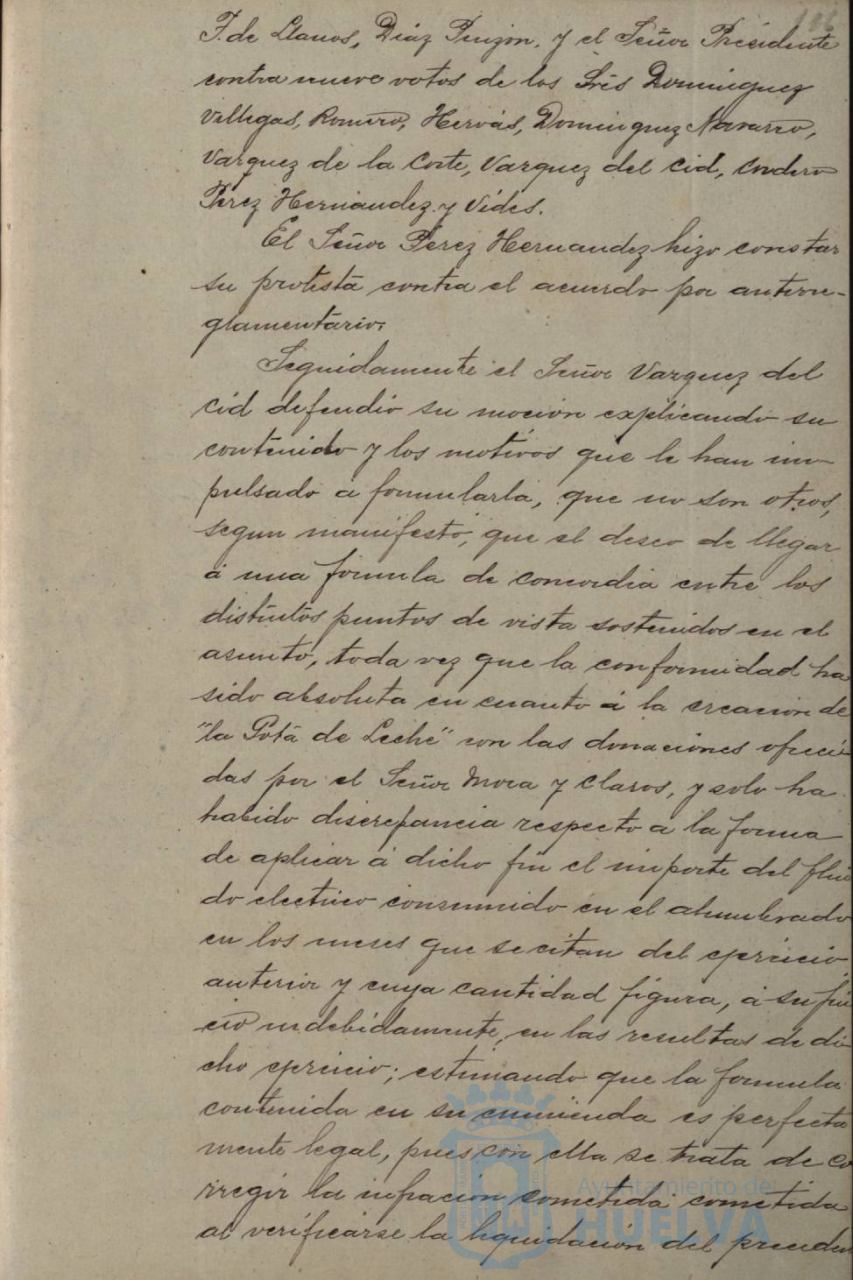 F. de Llanos, Diaz Pinzón, y el Señor Presidente
contra nueve votos de los Srés Dominguez
Villegas, Romero, Hervás, Dominguez Navarro,
Vazquez de la Corte, Vazquez del Cid, Cordero
Pérez Hernandez y Vides.
El Señor Pérez Hernandez hizo constar
su protesta contra el acuerdo por antirre-
glamentario.
Seguidamente el Señor Vazquez del
Cid defendió su moción explicando su
contenido y los motivos que le han im-
pulsado a formularla, que no son otros,
segun manifestó, que el deseo de llegar
á una fórmula de concordia entre los
distintos puntos de vista sostenidos en el
asunto, toda vez que la conformidad ha
sido absoluta en cuanto á la creacion de
"la Gota de Leche" con las donaciones ofreci-
das por el Señor Mora y Claros, y solo ha
habido discrepancia respecto a la forma
de aplicar á dicho fin el importe del flui
do electrico consumido en el alumbrado
en los meses que se citan del ejercicio
anterior y cuya cantidad figura, á su jui
cio indebidamente, en las resultas de di
cho ejercicio; estimando que la formula
contenida en su enmienda es perfecta
mente legal, pues con ella se trata de co
rregir la infracion cometida cometida
al verificarse la liquidacion del preceden
Ayuntamiento de
HUELVA